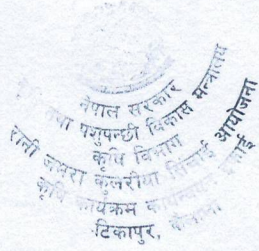 नेपाल सरकार
तथा पशुपन्छी विकास मन्त्रालय
कृषि विभाग
रानी जमरा कुलरीया सिंचाई आयोजना
कृषि कार्यक्रम इकाई
टिकापुर, कैलाली